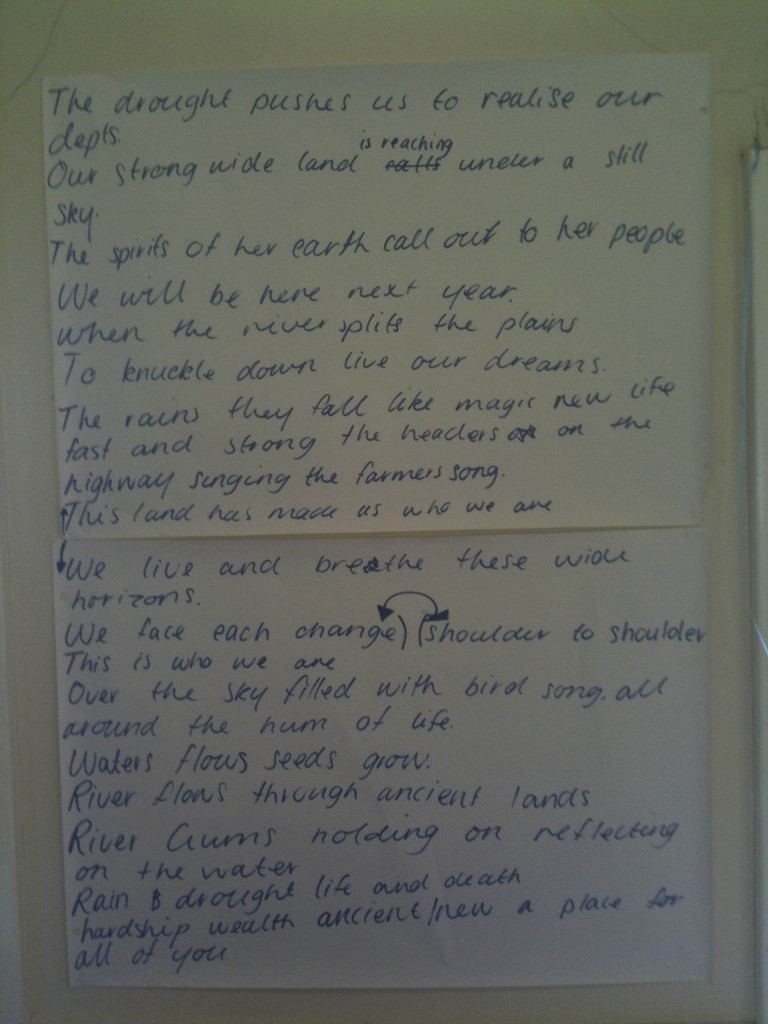 The drought pushes us to realise our
depts.
is reaching
Our strong wide land calls under a still
sky.
The spirits of her earth call out to her people
We will be here next year.
when the river splits the plains
To knuckle down live our dreams.
The rains they fall like magic new life
fast and strong the headers on the
highway singing the farmers song.
This land has made us who we are
We live and breathe these wide
horizons.
We face each change) (shoulder to shoulder
This is who we are
Over the sky filled with bird song. all
around the hum of life.
Waters flows seeds grow.
River flows through ancient lands
River Gums holding on reflecting
on the water
Rain & drought life and death
hardship wealth ancient/new a place for
all of you